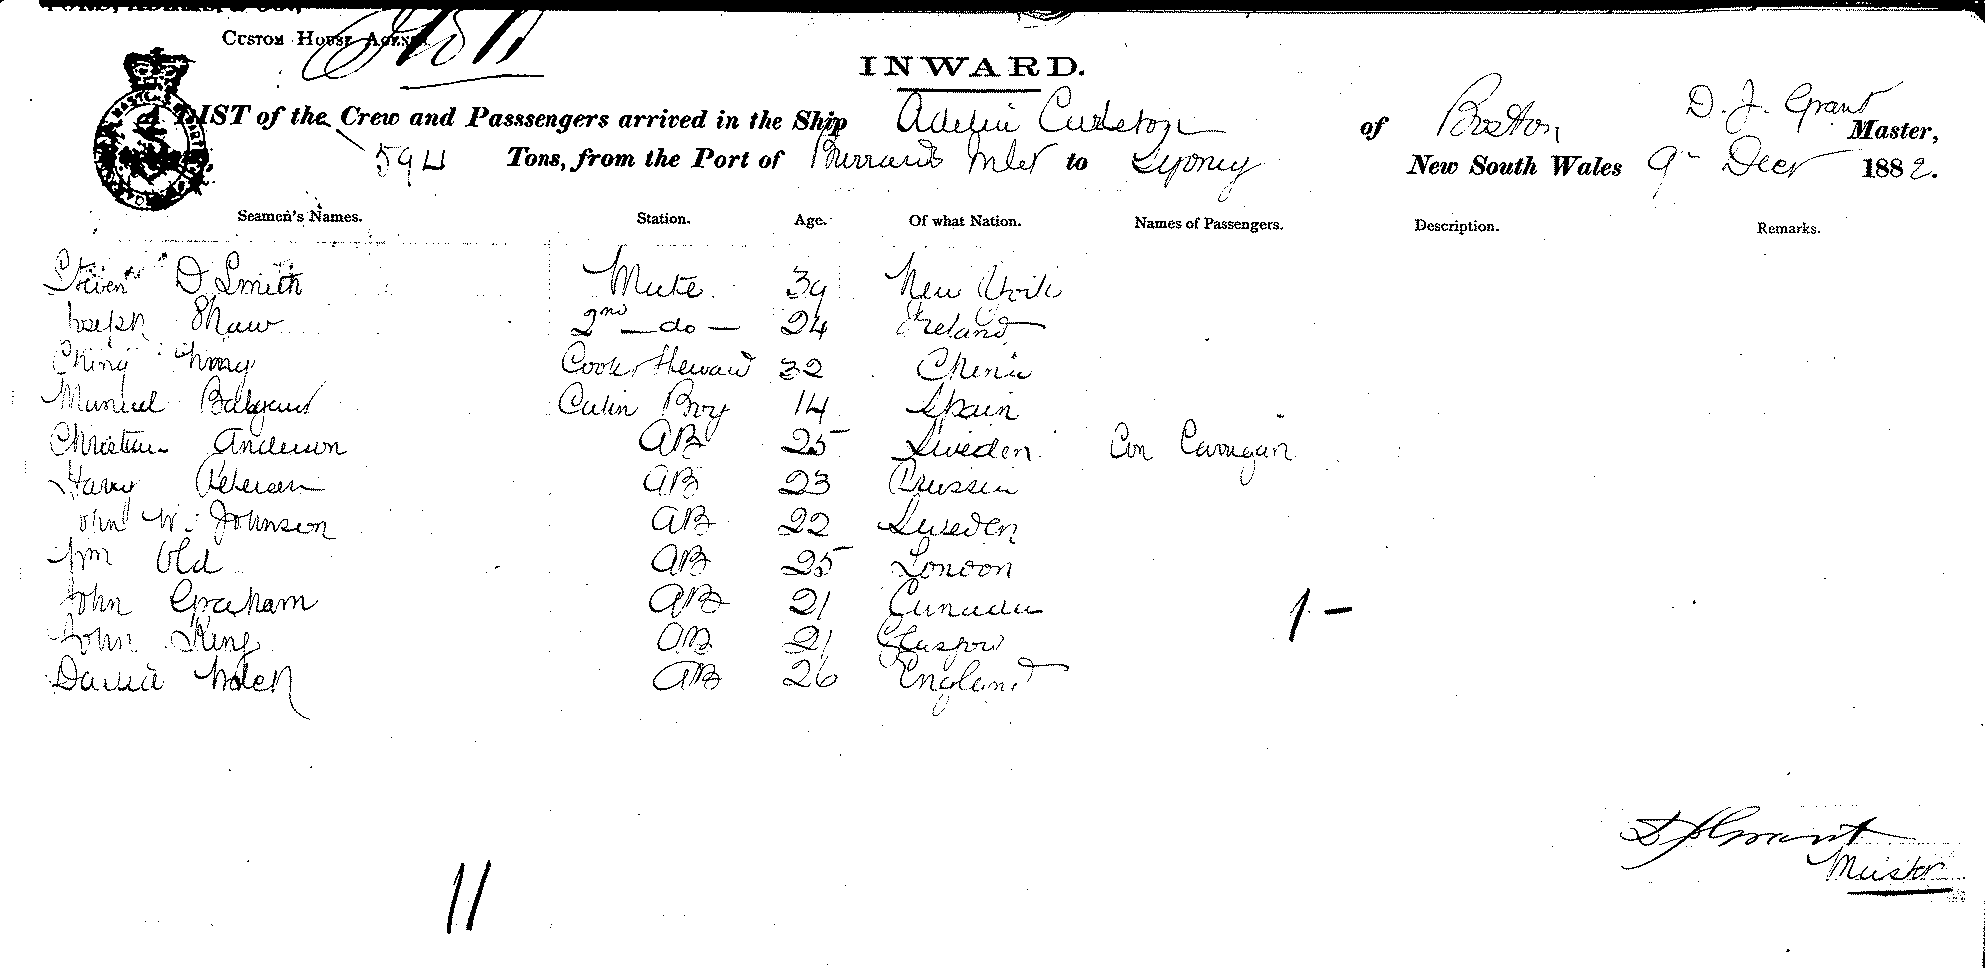 Custom House Agen
INWARD.
LIST of the Crew and Passsengers arrived in the Ship Adelia Carleton of Boston D. J. Grant Master,
594 Tons, from the Port of Burrard Inlet to Sydney New South Wales 9th Decr 1882.
Seamen's Names. Station. Age. Of what Nation. Names of Passengers. Description. Remarks.
Steven D Smith Mate 39 New York
Joseph Shaw 2nd — do — 24 Ireland
Ching Cook & Steward 32 China
Manuel Cabin Boy 14 Spain
Christian Anderson AB 25 Sweden Con Cavagan
Harry Petersen AB 23 Prussia
John W. Johnson AB 22 Sweden
Wm Old AB 25 London
John Graham AB 21 Canada
John King AB 21 Glasgow
David AB 26 England
1 —
D J Grant
Master
11